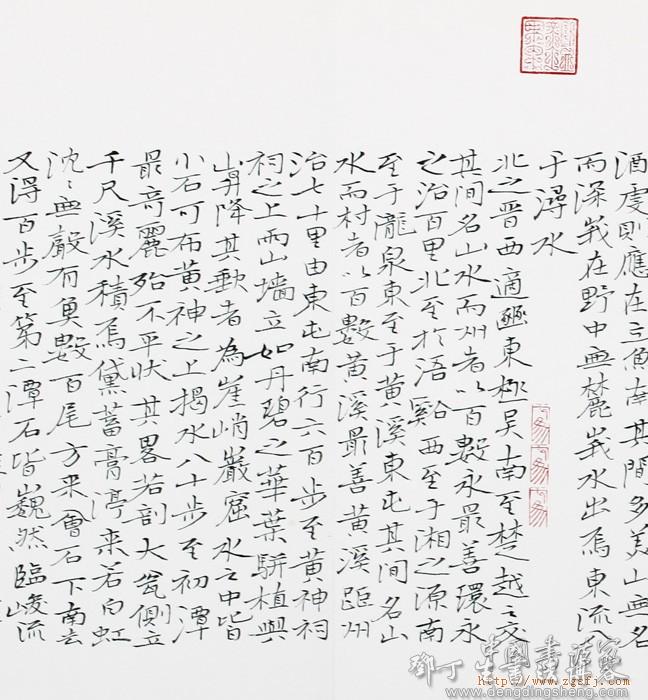 酒虔則應在立魚南其間多美山無名
而深峩在野中無麓峩水出焉東流入
于潯水
北之晋西適豳東極吳南至楚越之交
其間名山水而州者以百數永最善環永
之治百里北至於浯谿西至于湘之源南
至于瀧泉東至于黄溪東屯其間名山
水而村者以百數黄溪最善黄溪距州
治七十里由東屯南行六百步至黄神祠
祠之上兩山墙立如丹碧之華葉駢植與
山升降其缺者為崖峭巖窟水之中皆
小石可布黄神之上揭水八十步至初潭
最奇麗殆不平狀其畧若剖大甕側立
千尺溪水積焉黛蓄膏渟来若白虹
沈〻無聲有魚數百尾方来會石下南去
又得百步至第二潭石皆巍然臨峻流
http://www.zgsfj.com
www.dengdingsheng.com